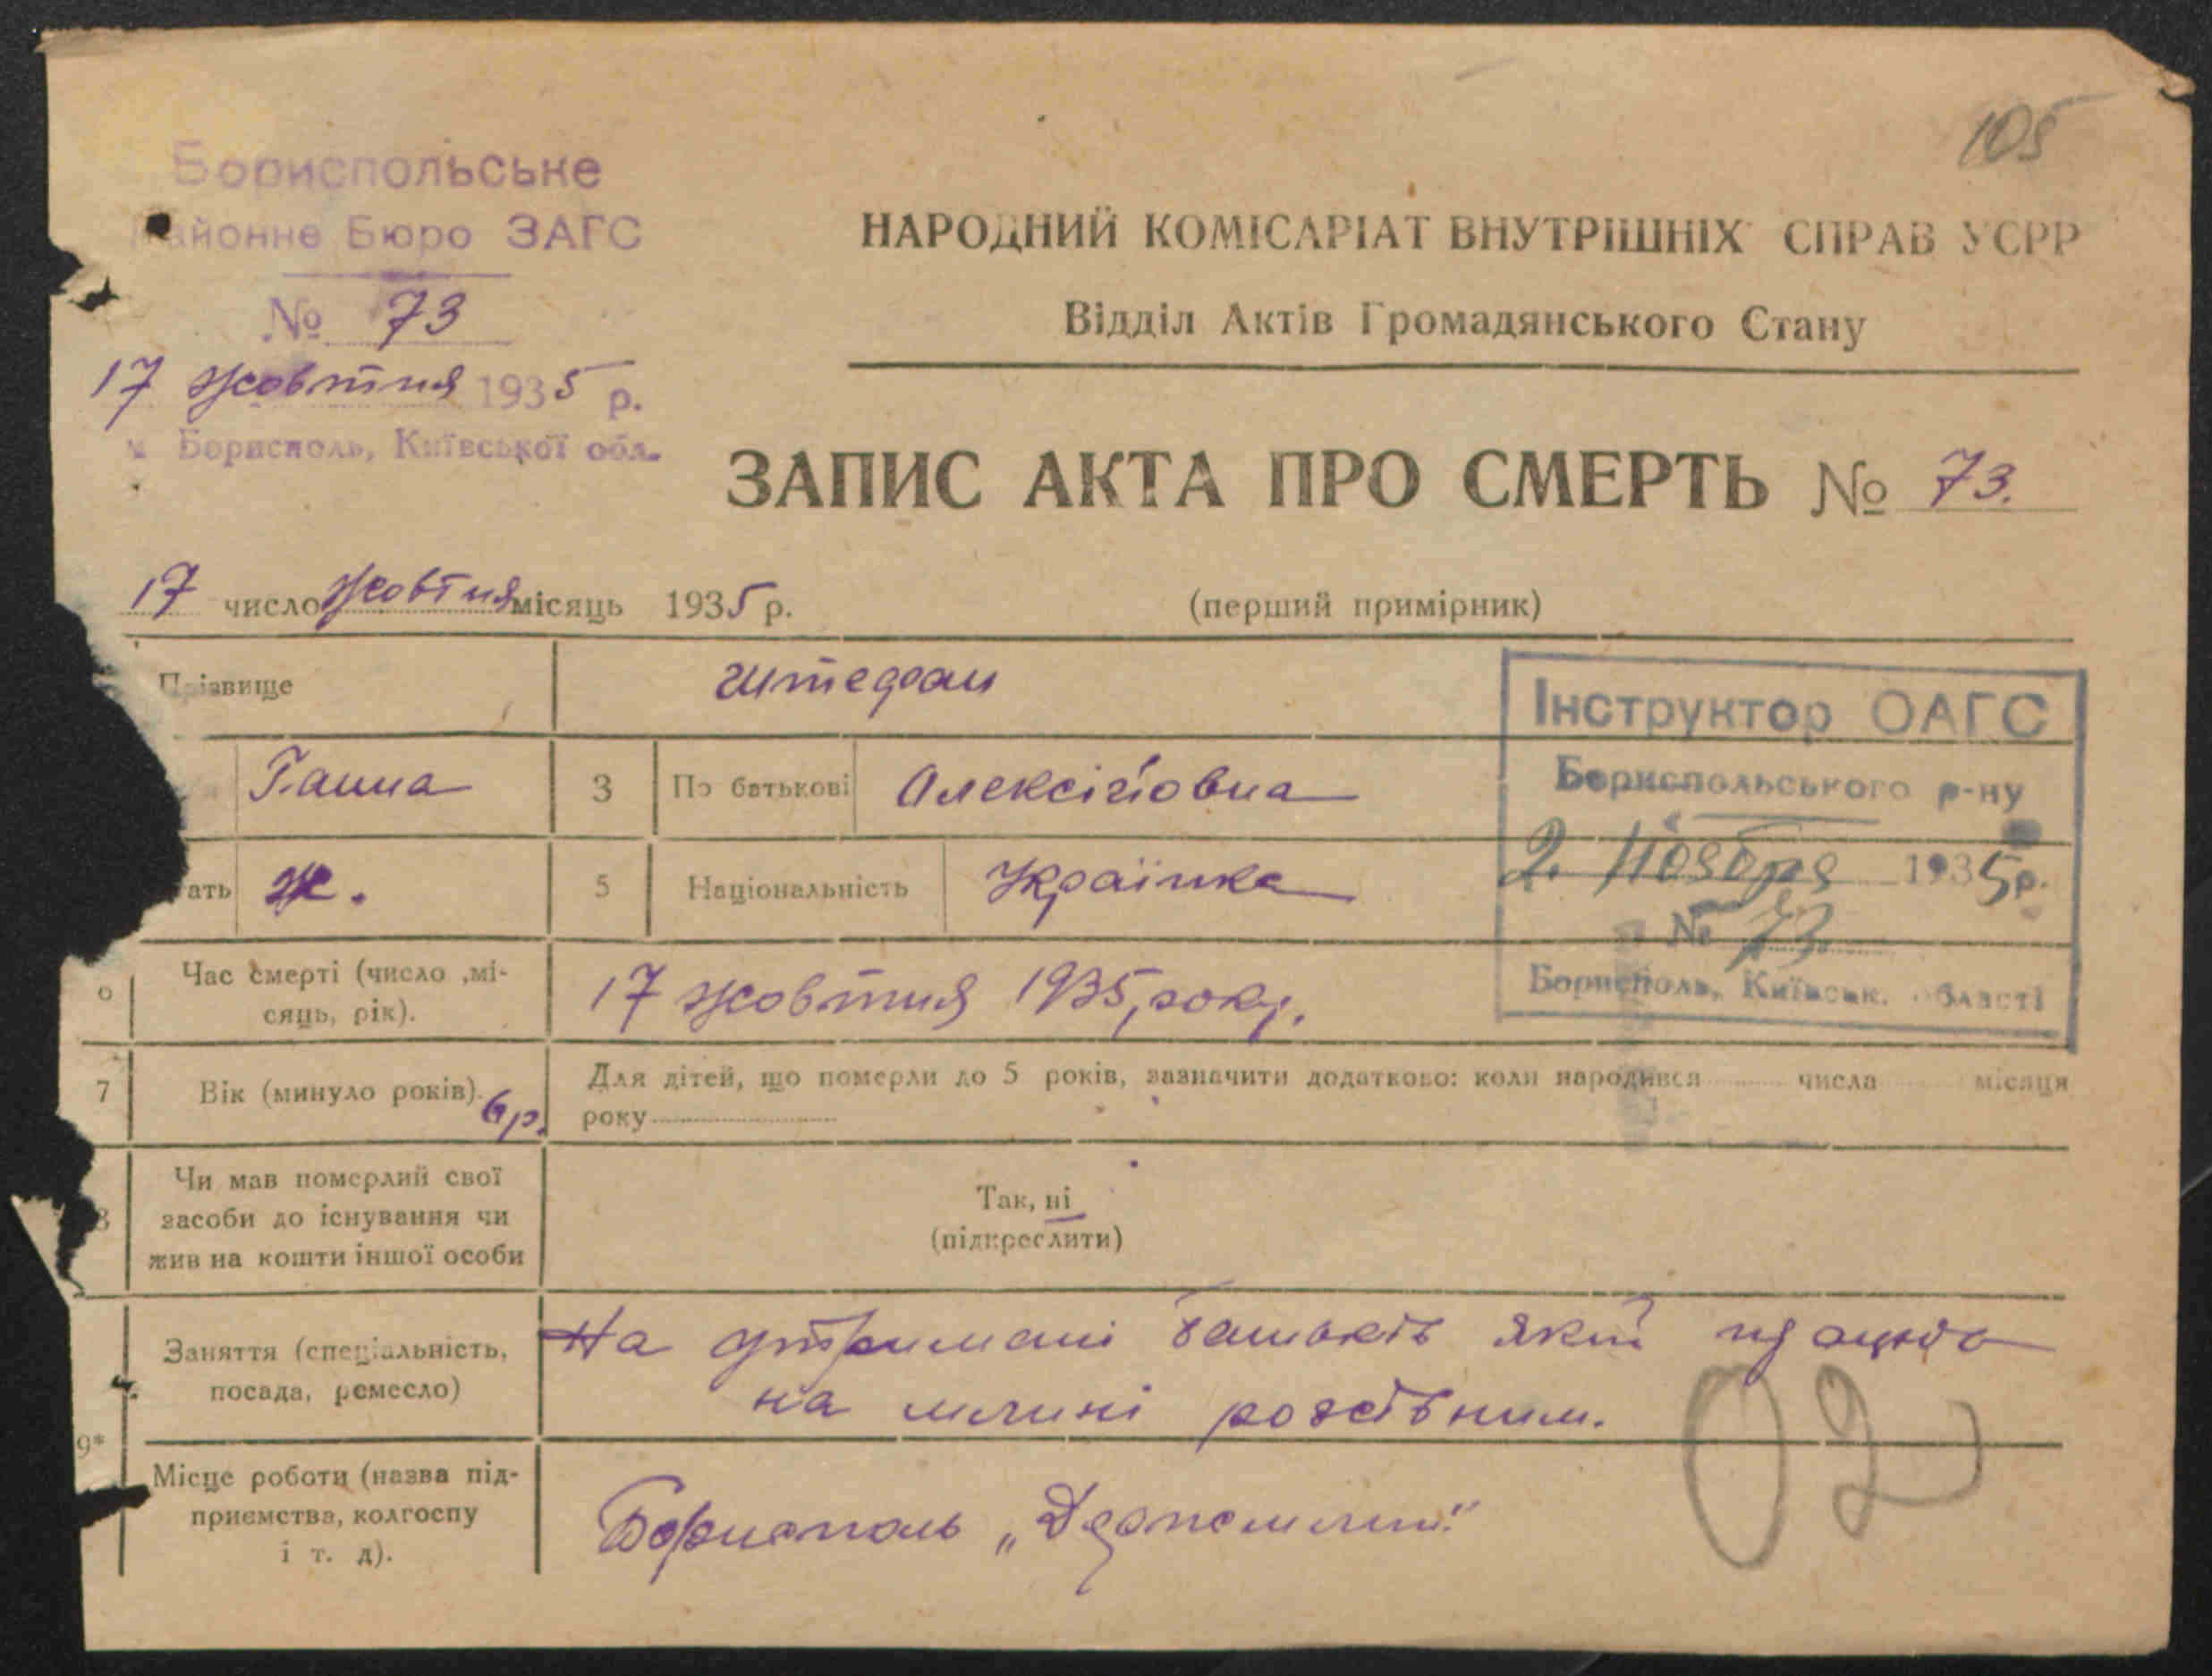 105
Бориспольське
Районне Бюро ЗАГС
№ 73
17 жовтня 1935 р.
м Борисполь, Київської обл.
НАРОДНИЙ КОМІСАРІАТ ВНУТРІШНІХ СПРАВ УСРР
Відділ Актів Громадянського Стану
ЗАПИС АКТА ПРО СМЕРТЬ № 73.
17 число жовтня місяць 1935 р. (перший примірник)
Прізвище Штефан
Ганна 3 По батькові Олексійовна
ать Ж. 5 Національність Українка
Інструктор ОАГС
Бориспольського р-ну
2 Ноября 1935 р.
№ 73.
Борисполь, Київськ. області
6 Час смерті (число ,мі-
сяць, рік).
17 жовтня 1935, року.
7 Вік (минуло років). 6 р.
Для дітей, що померли до 5 років, зазначити додатково: коли народився числа місяця
року
8 Чи мав померлий свої
засоби до існування чи
жив на кошти іншої особи
Так, ні
(підкреслити)
9*
Заняття (спеціальність,
посада, ремесло)
На утримані батьків який працює
на млині
Місце роботи (назва під-
приємства, колгоспу
і т. д).
Борисполь „Держмлин"
02